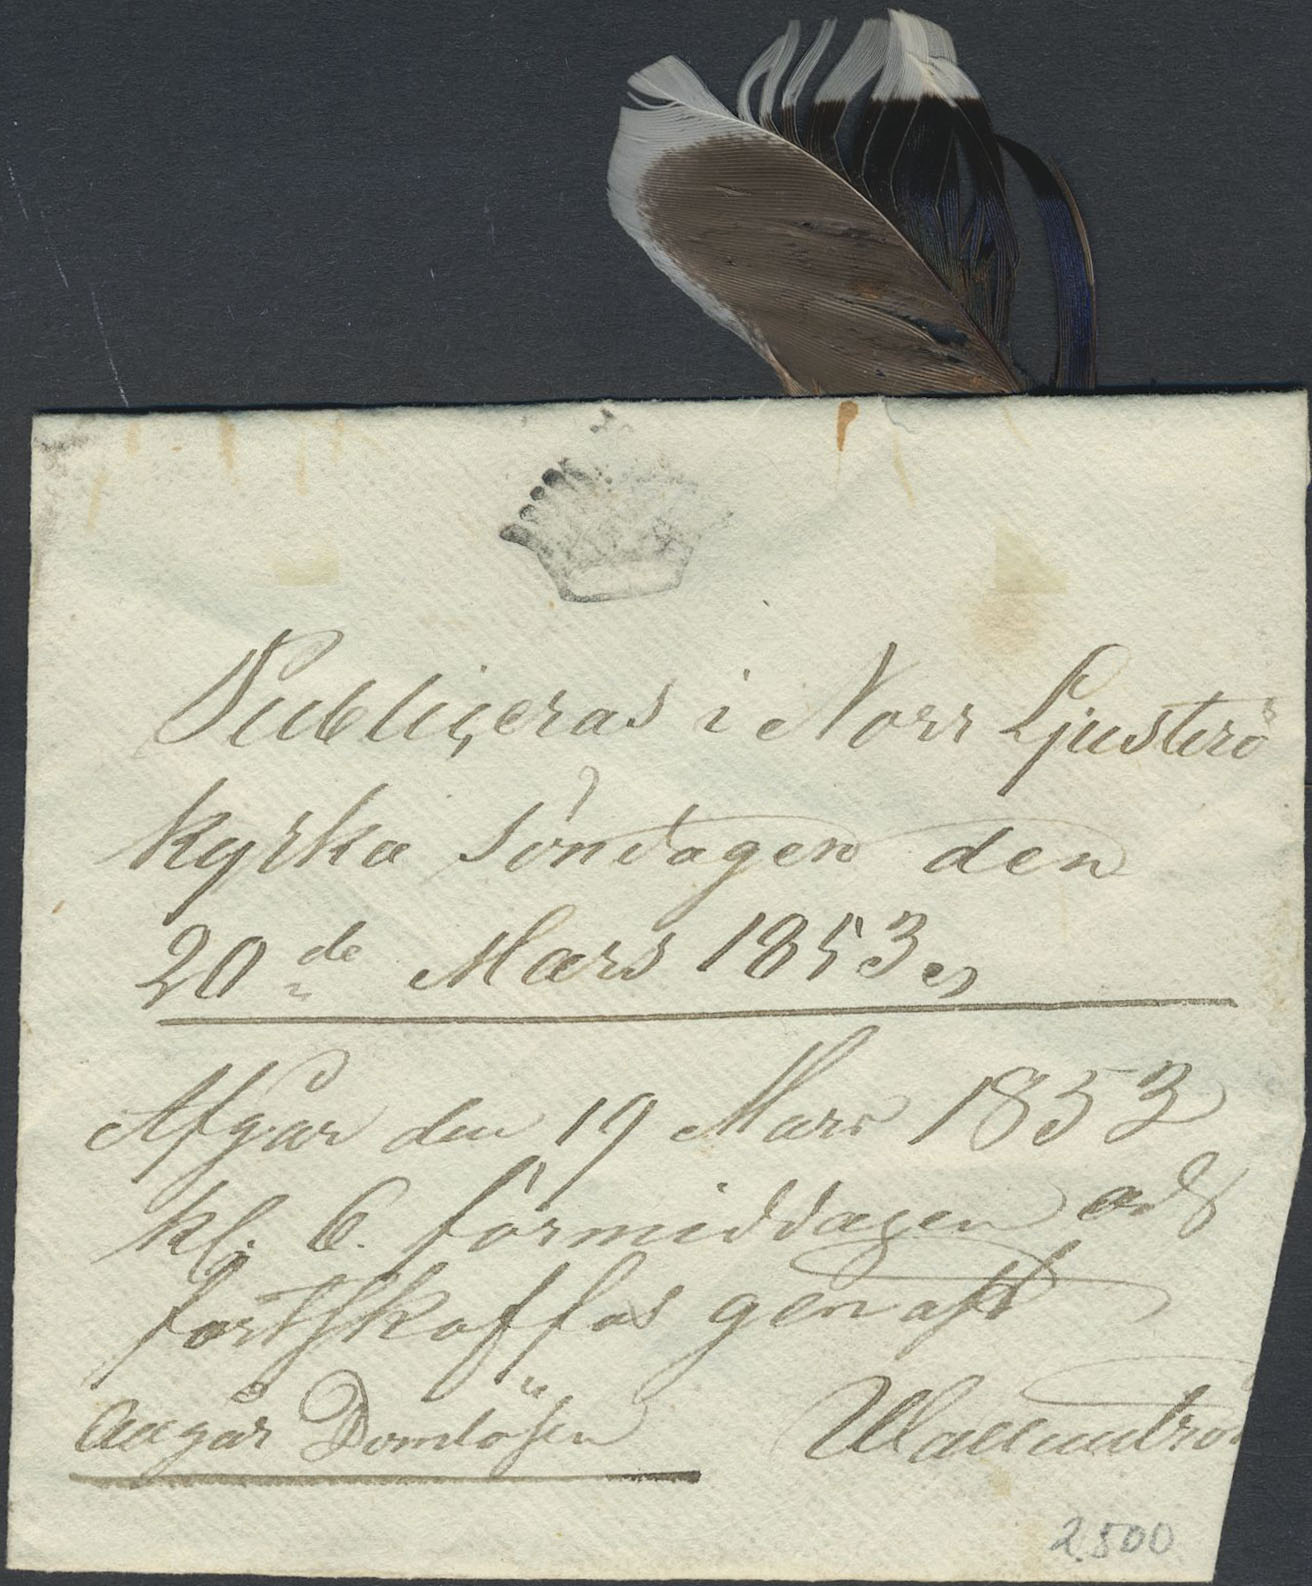 Publiceras i Norr Ljusterö
kyrka söndagen den
20de Mars 1853
Afgår den 19 Mars 1853
kl. 6. förmiddagen och
fortskaffas genast
Angår
2500